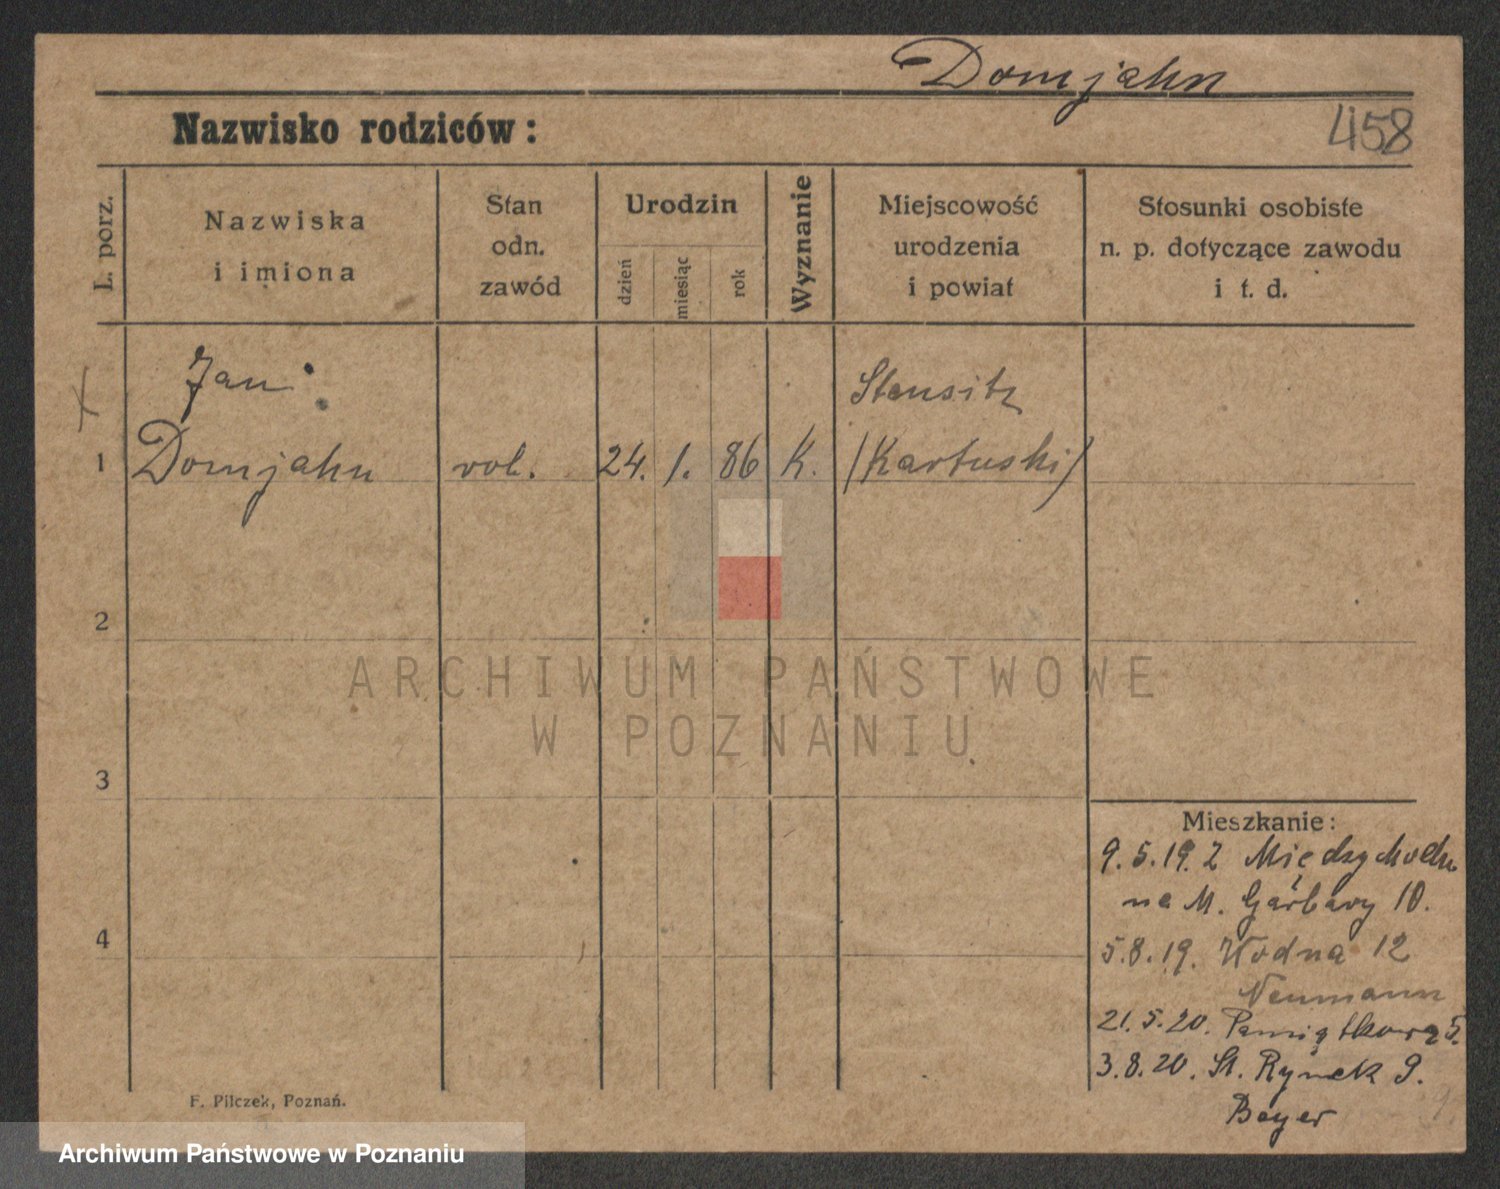 Domjahn
Nazwisko rodziców:
458
L. porz.
Nazwiska
i imiona
Stan
odn.
zawód
Urodzin
dzień
miesiąc
rok
Wyznanie
Miejscowość
urodzenia
i powiat
Stosunki osobiste
n. p. dotyczące zawodu
i t. d.
Jan
Stensitz
1 Domjahn rol. 24. 1. 86 K. (Kartuski)
2
ARCHIWUM PAŃSTWOWE
W POZNANIU
3
Mieszkanie:
9.5.19. z Międzychodu
na M. Garbary 10.
4
5.8.19. Wodna 12
Neumann
21.5.20. Pamiątkowa 5.
3.8.20. St. Rynek 9.
Beyer
F. Pilczek, Poznań.
Archiwum Państwowe w Poznaniu